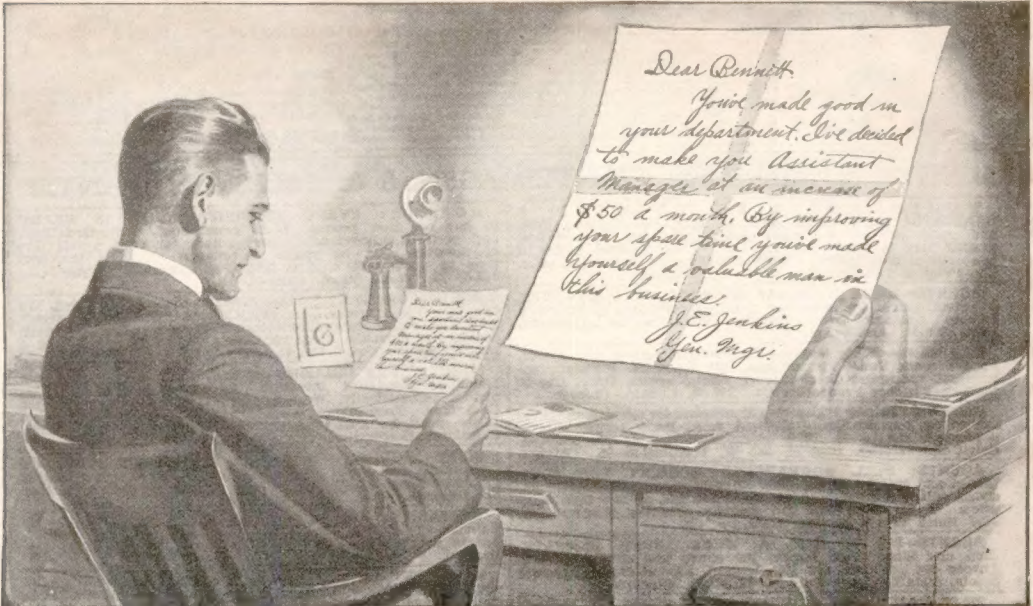 Dear Bennett
You've made good in
your department. I've decided
to make you Assistant
Manager at an increase of
$50 a month. By improving
your spare time you've made
yourself a valuable man in
this business.
J.E. Jenkins
Gen. Mgr.
Dear Bennett